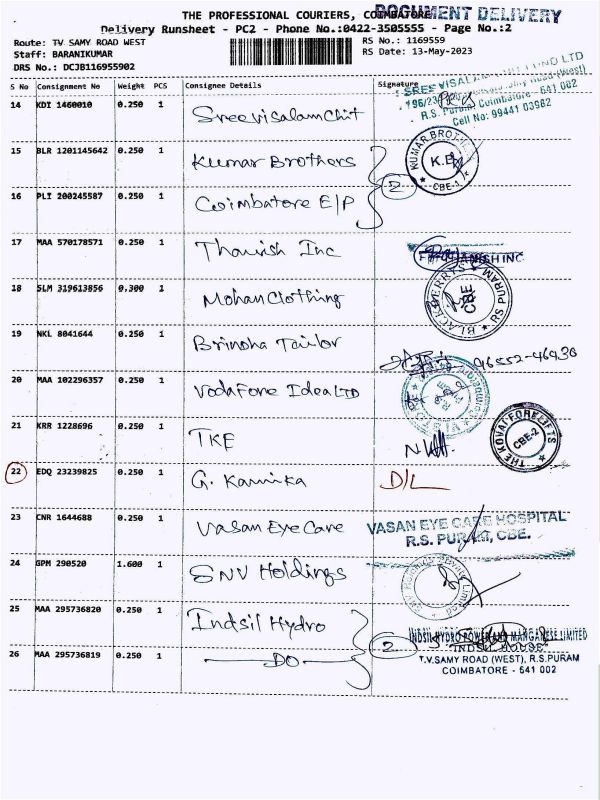 THE PROFESSIONAL COURIERS, COIMBATORE
DOCUMENT DELIVERY
Delivery Runsheet - PC2 - Phone No.:0422-3505555 - Page No.:2
Route: TV SAMY ROAD WEST
RS No.: 1169559
Staff: BARANIKUMAR
RS Date: 13-May-2023
DRS No.: DCJB116955902
S No Consignment No Weight PCS Consignee Details Signature
14 KDI 1460010 0.250 1 Sreevisalam Chit
SREE VISALAM CHIT FUND LTD
R.S. Puram Coimbatore - 641 002
Cell No: 99441 03982
15 BLR 1201145642 0.250 1 Kumar Brothers
KUMAR BROTHERS
CBE-1
16 PLI 200245587 0.250 1 Coimbatore E/P
2
17 MAA 570178571 0.250 1 Thanish Inc
THANISH INC
18 SLM 319613856 0.300 1 Mohan Clothing
BLACKBERRYS
CBE
RS PURAM
19 NKL 8041644 0.250 1 Brindha Tailor
96552-46930
20 MAA 102296357 0.250 1 Vodafone Idea LTD
21 KRR 1228696 0.250 1 TKF
THE KOVAI FORGLIFTS
CBE-2
22 EDQ 23239825 0.250 1 G. Kannika D/L
23 CNR 1644688 0.250 1 Vasan Eye Care
VASAN EYE CARE HOSPITAL
R.S. PURAM, CBE.
24 GPM 290520 1.600 1 SNV Holdings
25 MAA 295736820 0.250 1 Indsil Hydro
INDSIL HYDRO POWER AND MANGANESE LIMITED
2
"INDSIL HOUSE"
26 MAA 295736819 0.250 1 —DO—
T.V.SAMY ROAD (WEST), R.S.PURAM
COIMBATORE - 641 002